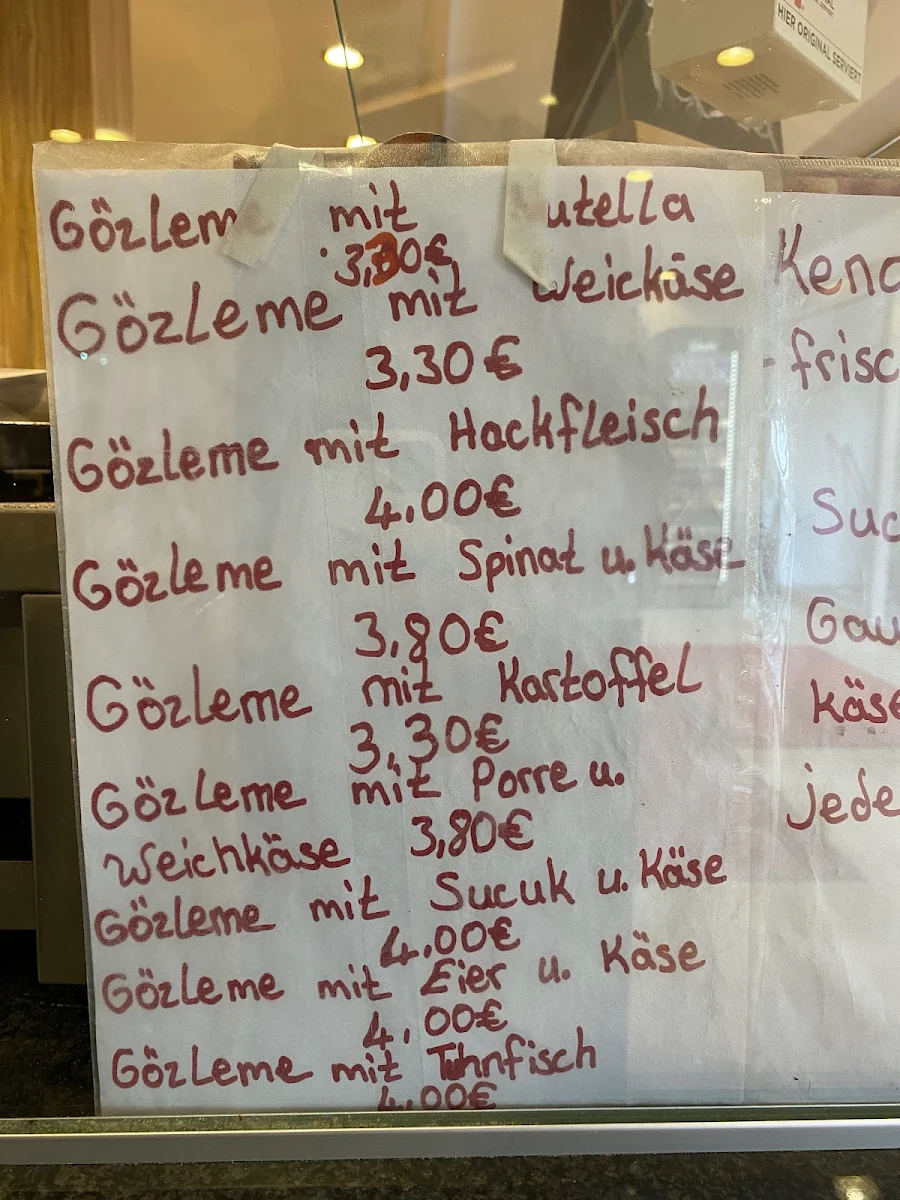 HIER ORIGINAL SERVIERT
Gözlem mit utella
3,30€
Gözleme mit Weickäse
3,30€
Gözleme mit Hackfleisch
4.00€
Gözleme mit Spinat u. Käse
3,80€
Gözleme mit Kartoffel
3,30€
Gözleme mit Porre u.
Weichkäse 3,80€
Gözleme mit Sucuk u. Käse
4.00€
Gözleme mit Eier u. Käse
4,00€
Gözleme mit Thnfisch
4.00€
Kend
frisc
Suc
Gau
Käse
jede